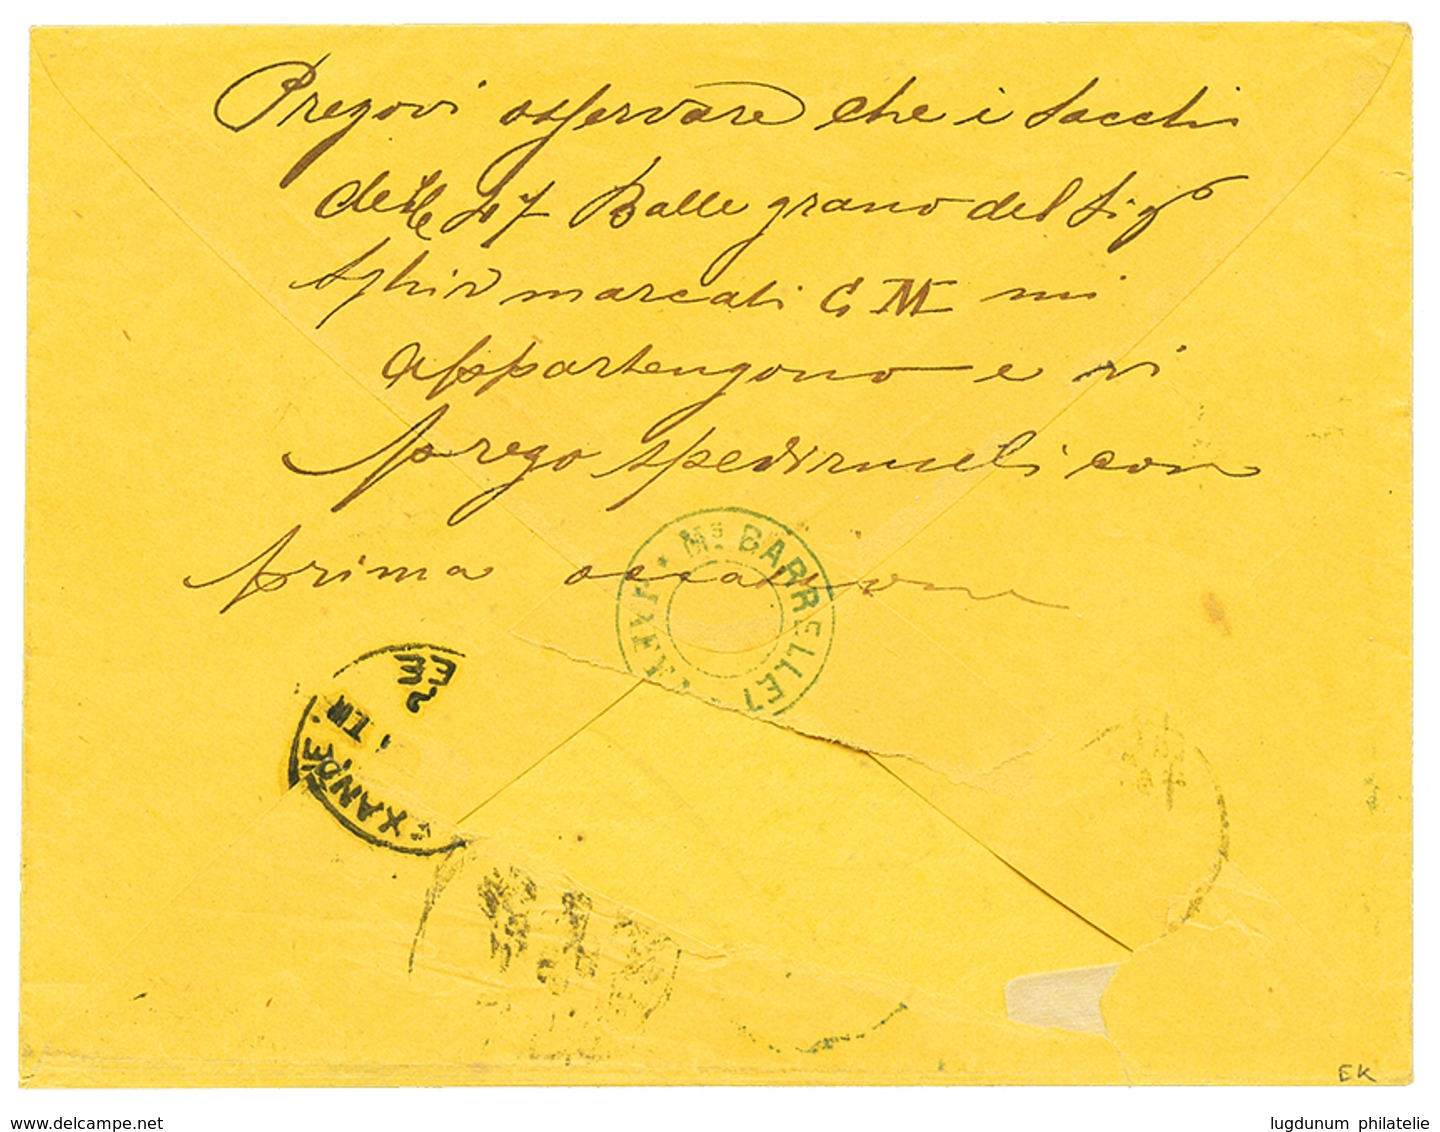 Pregovi osservare che i sacchi
delle 47 Balle grano del Sigr
marcati GM mi
appartengono e vi
prego spedirmeli con
prima occasione
Ms BARRELLET
EXANDE
EK
www.delcampe.net
lugdunum philatelie